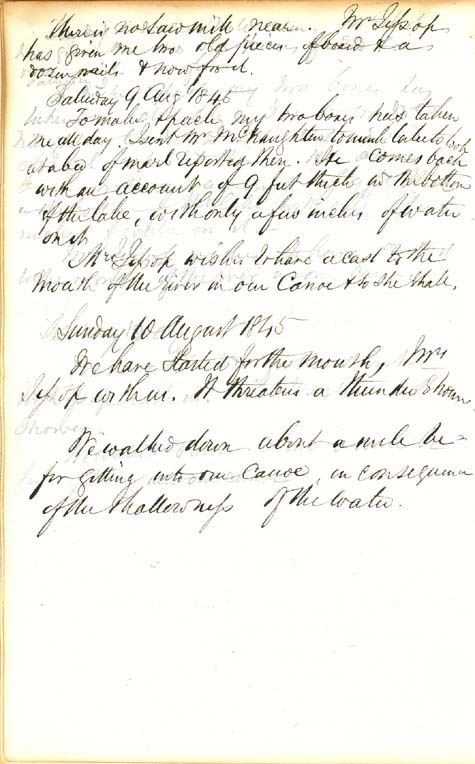 There is no Saw mill near. Mr Jessop
has given me two old pieces of board & a
dozen nails & now for it.
Saturday 9 Aug 1845
To make & pack my two boxes has taken
me all day. I sent Mr McNaughten to mud lake to look
at a bed of marl reported there. He comes back
with an account of 9 feet thick in the bottom
of the lake, with only a few inches of water
on it.
Mrs Jessop wishes to have a cast to the
Mouth of the river in our Canoe & so she shall.
Sunday 10 August 1845
We have started for the mouth, Mrs
Jessop with us. It threatens a thunder storm
We walked down about a mile be-
for getting into our Canoe, in consequence
of the shallowness of the water.